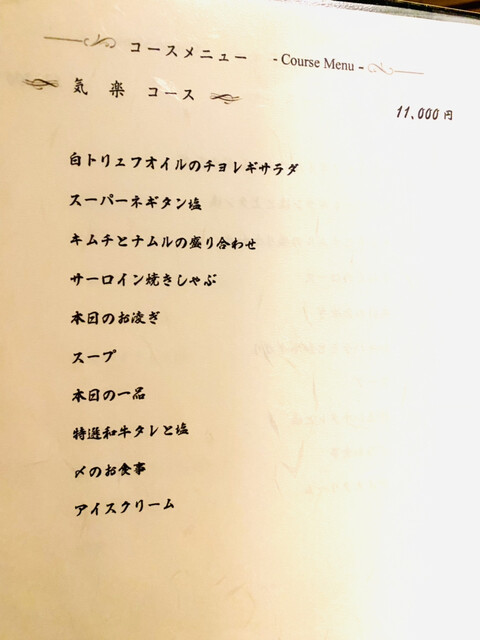 コースメニュー - Course Menu -
気 楽 コース
11,000円
白トリュフオイルのチョレギサラダ
スーパーネギタン塩
キムチとナムルの盛り合わせ
サーロイン焼きしゃぶ
本日のお凌ぎ
スープ
本日の一品
特選和牛タレと塩
〆のお食事
アイスクリーム